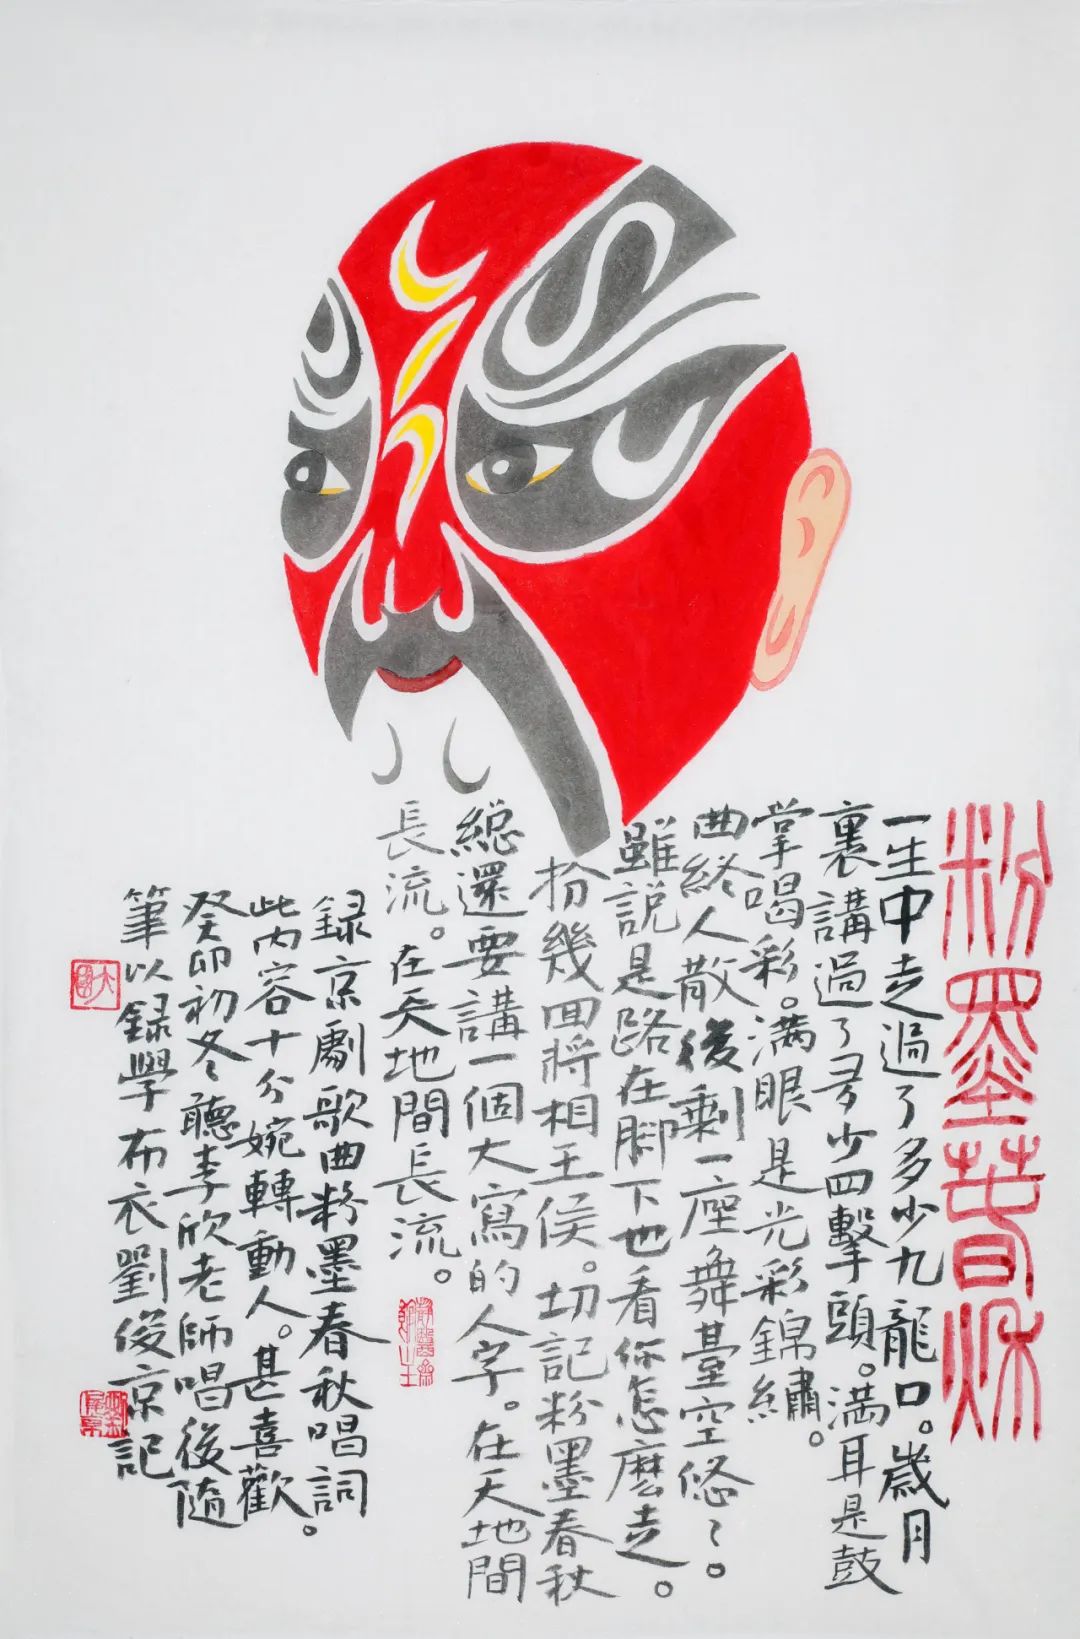 粉墨春秋
一生中走過了多少九龍口。歲月
裏講過了多少四擊頭。满耳是鼓
掌喝彩。满眼是光彩錦繡。
曲終人散後剩一座舞臺空悠々。
雖説是路在脚下也看你怎麽走。
扮幾回將相王侯。切記粉墨春秋
總還要講一個大寫的人字。在天地間
長流。在天地間長流。
録京劇歌曲粉墨春秋唱詞
此内容十分婉轉動人。甚喜歡。
癸卯初冬聽李欣老師唱後隨
筆以録學布衣劉俊京記